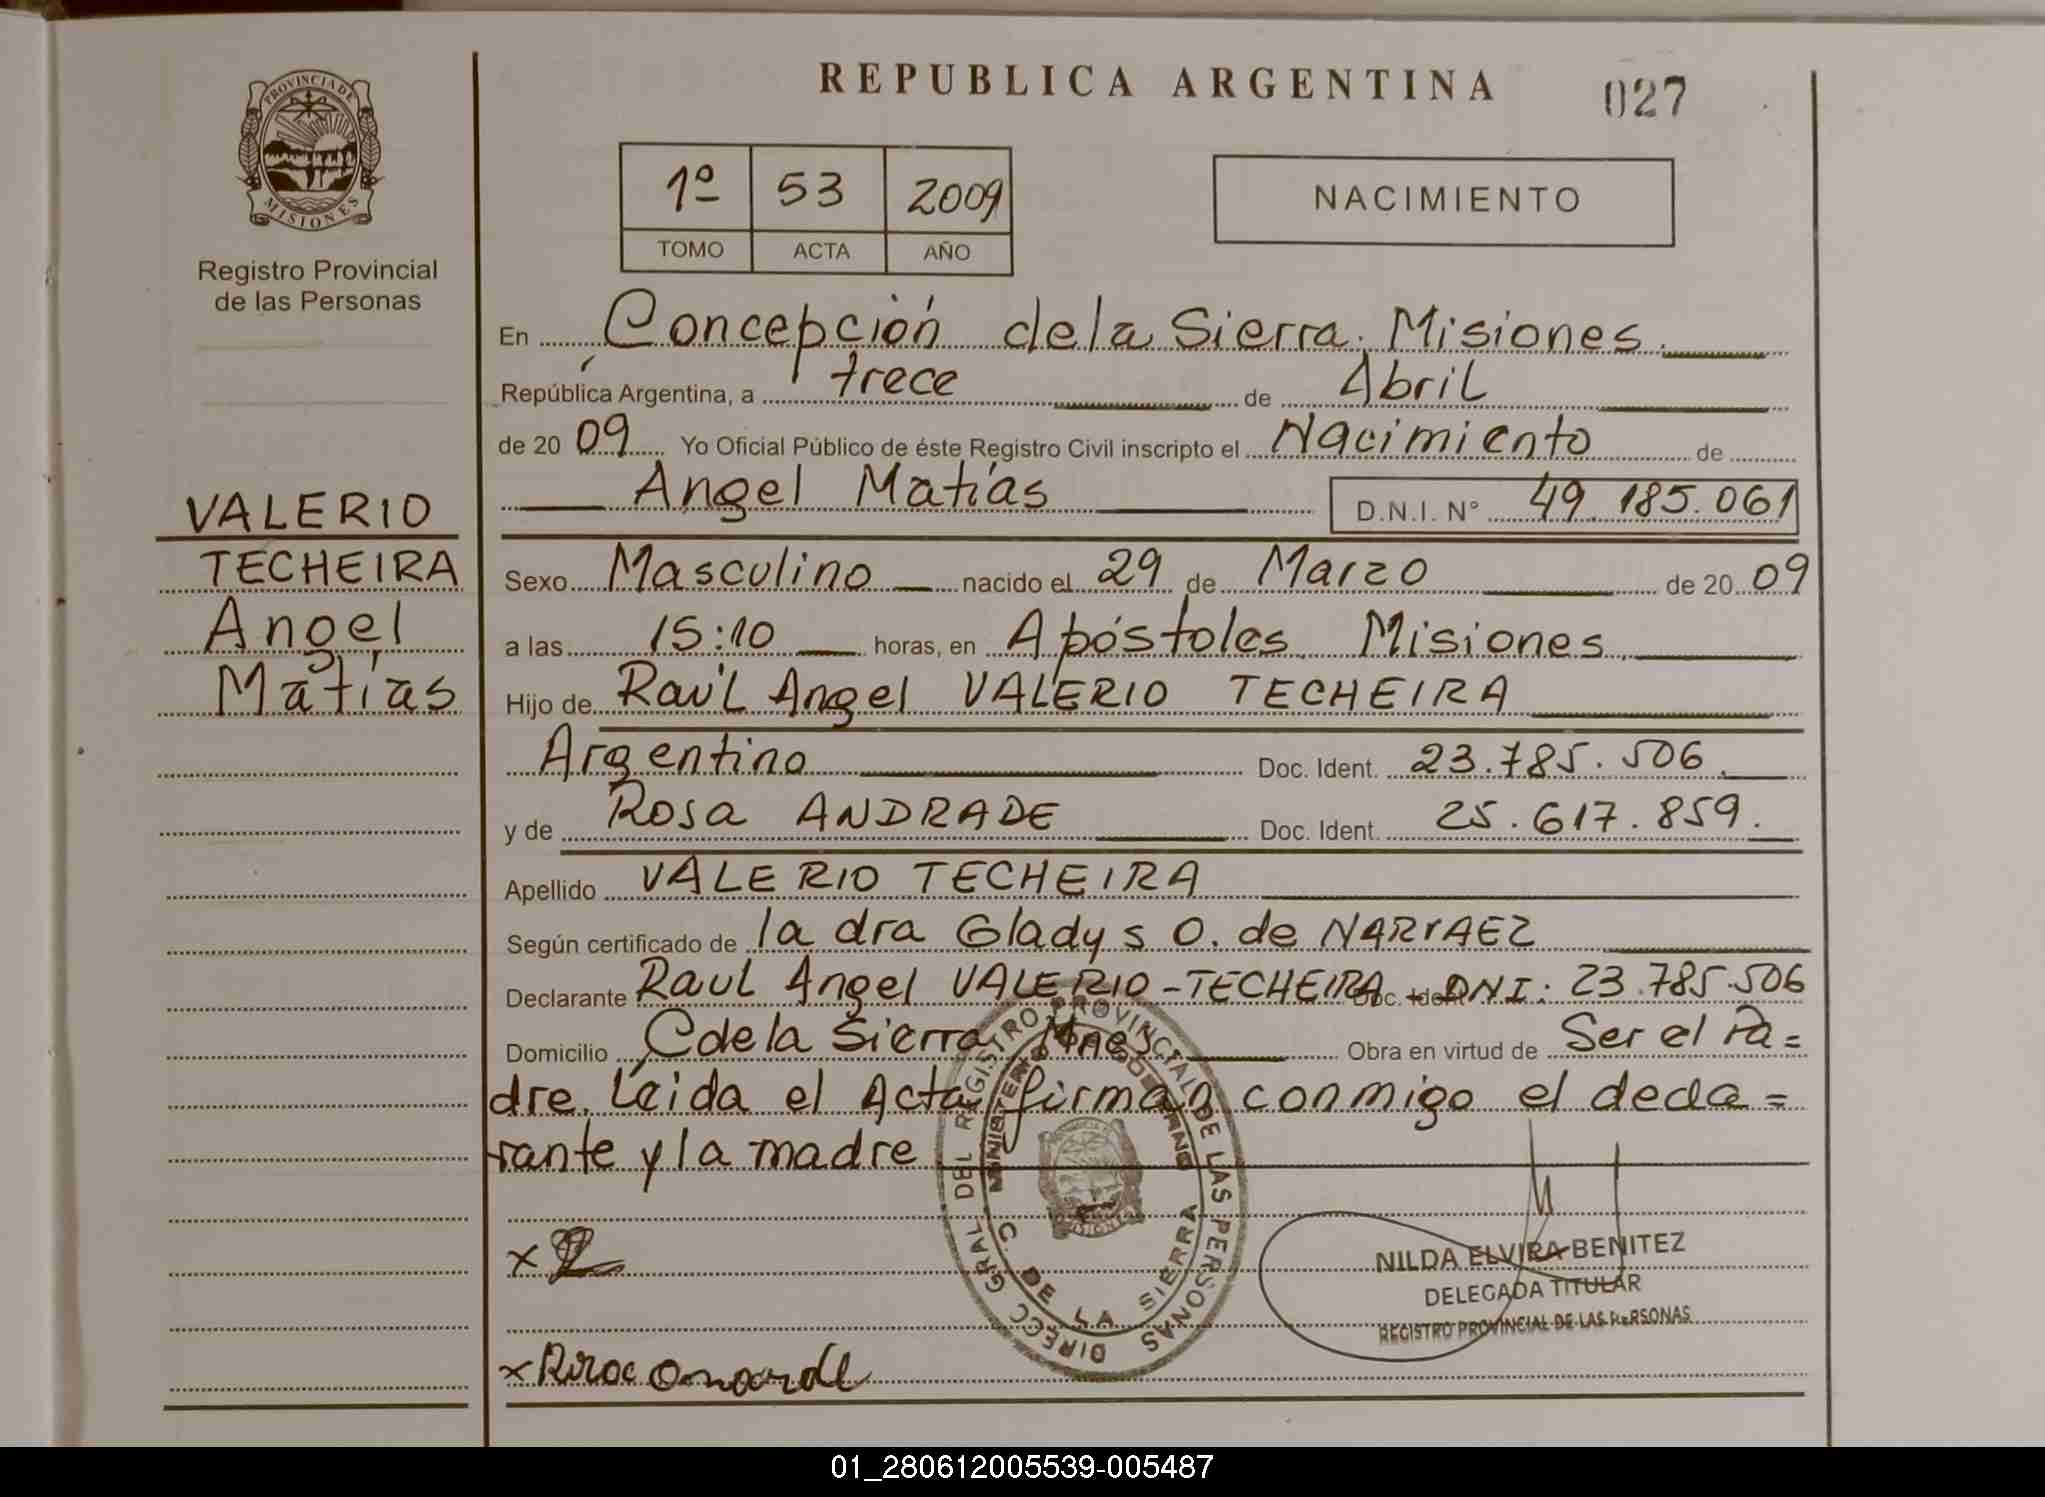 REPUBLICA ARGENTINA
027
PROVINCIA DE
MISIONES
Registro Provincial
de las Personas
1º 53 2009
TOMO ACTA AÑO
NACIMIENTO
En Concepción de la Sierra. Misiones.
República Argentina, a trece de Abril
de 20 09 Yo Oficial Público de éste Registro Civil inscripto el Nacimiento de
Angel Matías D.N.I. Nº 49.185.061
VALERIO
TECHEIRA
Angel
Matías
Sexo Masculino nacido el 29 de Marzo de 20 09
a las 15:10 horas, en Apóstoles. Misiones.
Hijo de Raúl Angel VALERIO TECHEIRA
Argentino Doc. Ident. 23.785.506.
y de Rosa ANDRADE Doc. Ident. 25.617.859.
Apellido VALERIO TECHEIRA
Según certificado de la dra Gladys O. de NARVAEZ
Declarante Raul Angel VALERIO-TECHEIRA - Doc. Ident. DNI: 23.785.506
Domicilio C de la Sierra, Mnes Obra en virtud de Ser el Pa=
dre. Leida el Acta firman conmigo el decla=
rante y la madre
DIRECC GRAL DEL REGISTRO PROVINCIAL DE LAS PERSONAS
MINISTERIO DE GOBIERNO
C. DE LA SIERRA
MISIONES
x
NILDA ELVIRA BENITEZ
DELEGADA TITULAR
REGISTRO PROVINCIAL DE LAS PERSONAS
x
01_280612005539-005487